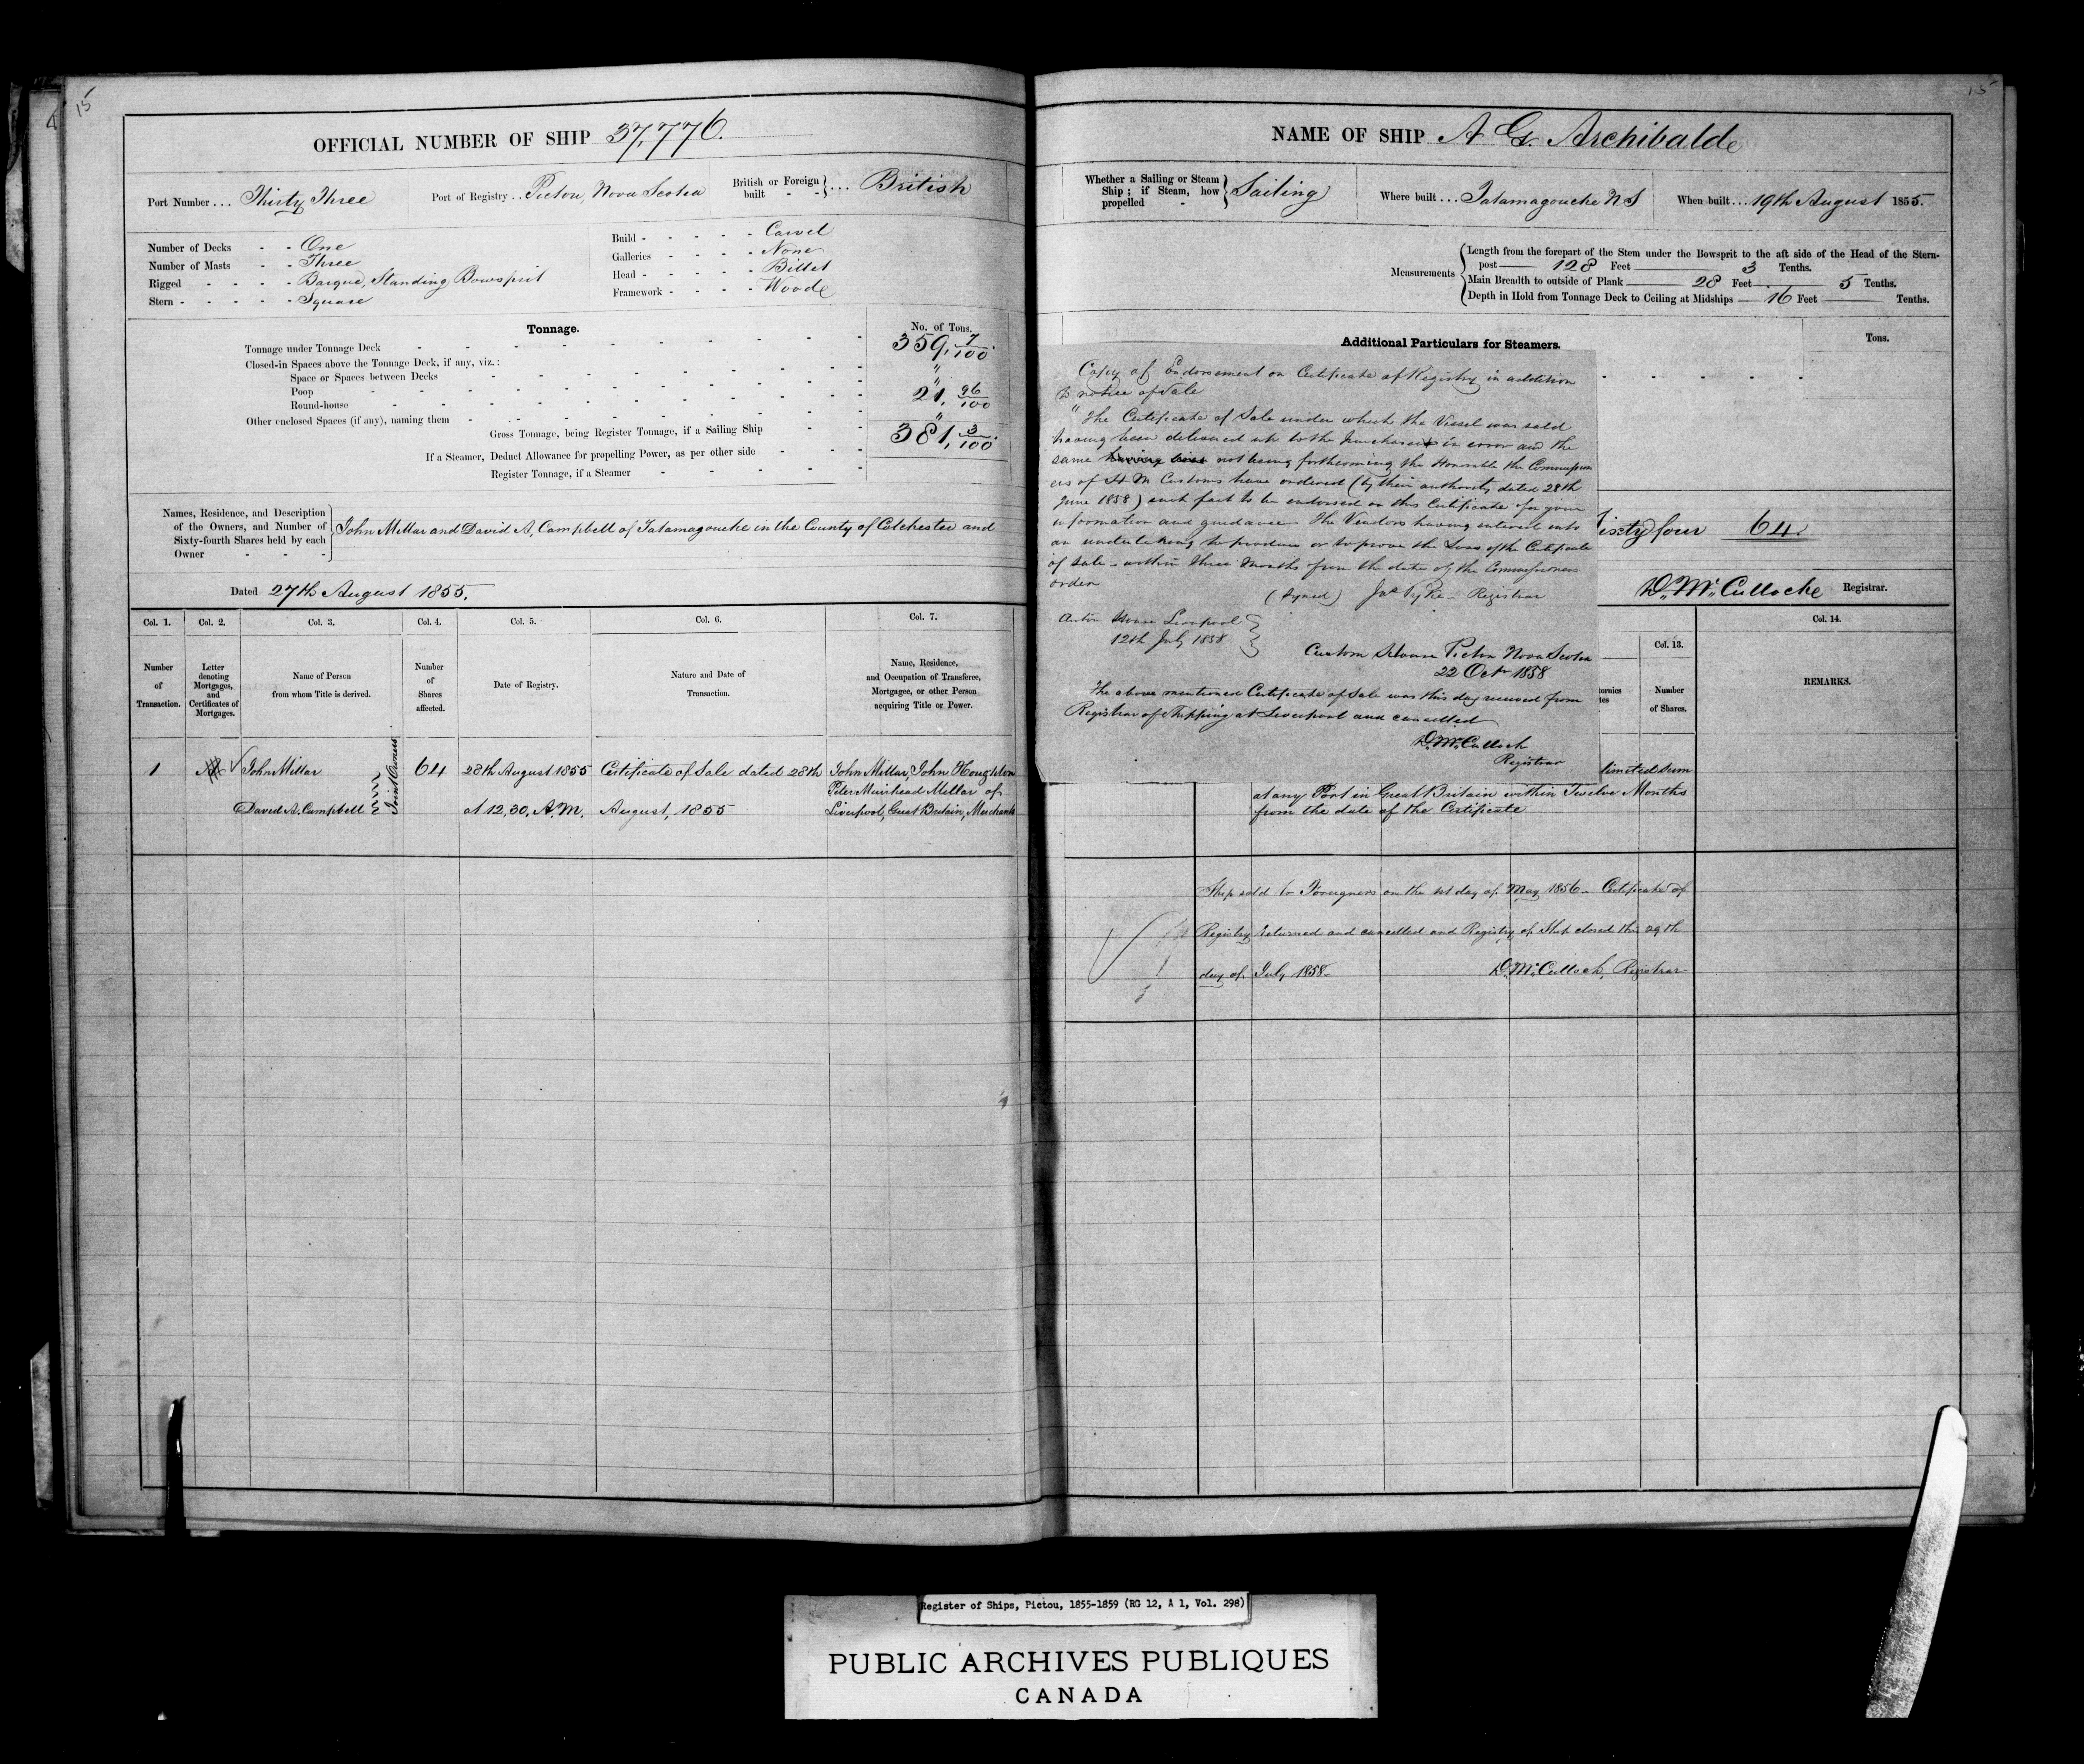 15
OFFICIAL NUMBER OF SHIP 37,776.
Port Number ... Thirty Three Port of Registry .. Pictou, Nova Scotia British or Foreign built - - } ... British
Number of Decks - - One
Number of Masts - - Three
Rigged - - - - Barque, Standing Bowsprit
Stern - - - - - Square
Build - - - - - Carvel
Galleries - - - - None
Head - - - - - Billet
Framework - - - - Woode
Tonnage. No. of Tons.
Tonnage under Tonnage Deck 359, 7/100.
Closed-in Spaces above the Tonnage Deck, if any, viz.:
Space or Spaces between Decks "
Poop "
Round-house 21, 96/100
Other enclosed Spaces (if any), naming them "
Gross Tonnage, being Register Tonnage, if a Sailing Ship 381, 3/100.
If a Steamer, Deduct Allowance for propelling Power, as per other side
Register Tonnage, if a Steamer
Names, Residence, and Description
of the Owners, and Number of
Sixty-fourth Shares held by each
Owner - - - -
John Millar and David A, Campbell of Tatamagouche in the County of Colchester and
Dated 27th August 1855.
Col. 1. Col. 2. Col. 3. Col. 4. Col. 5. Col. 6. Col. 7.
Number of Transaction.
Letter denoting Mortgages, and Certificates of Mortgages.
Name of Person from whom Title is derived.
Number of Shares affected.
Date of Registry.
Nature and Date of Transaction.
Name, Residence, and Occupation of Transferee, Mortgagee, or other Person acquiring Title or Power.
1 John Millar Joint Owners 64 28th August 1855 Certificate of Sale dated 28th John Millar, John Houghton
Peter Muirhead Millar of
David A. Campbell at 12,30, A.M. August, 1855 Liverpool, Great Britain, Merchants
15
NAME OF SHIP A G. Archibalde
Whether a Sailing or Steam
Ship; if Steam, how
propelled -
Sailing Where built ... Tatamagouche N S When built ... 19th August 1855.
Measurements
Length from the forepart of the Stem under the Bowsprit to the aft side of the Head of the Stern-
post 128 Feet 3 Tenths.
Main Breadth to outside of Plank 28 Feet 5 Tenths.
Depth in Hold from Tonnage Deck to Ceiling at Midships 16 Feet Tenths.
Additional Particulars for Steamers. Tons.
Copy of Endorsement on Certificate of Registry in addition
to notice of Sale
"The Certificate of Sale under which the Vessel was sold
having been delivered up to the purchasers in error and the
same having been not being forthcoming the Honorable the Commission
ers of H M Customs have ordered (by their authority dated 28th
June 1858) such fact to be endorsed on this Certificate for your
information and guidance The Vendors having entered into
an undertaking to produce or to prove the Loss of the Certificate
of Sale - within three Months from the date of the Commissioners
order
(Signed) Jas Pyke - Registrar
Custom House Liverpool
12th July 1858
Custom House Pictou Nova Scotia
22 Octr 1858
The above mentioned Certificate of Sale was this day received from
Registrar of Shipping at Liverpool and cancelled
D. McCulloch
Registrar
Sixty four 64.
D. McCulloche Registrar.
Col. 13. Col. 14.
Number of Shares.
REMARKS.
limited Sum
at any Port in Great Britain within Twelve Months
from the date of the Certificate
Ship sold to Foreigners on the 1st day of May 1856 - Certificate of
Registry returned and cancelled and Registry of Ship closed this 29th
day of July 1858 - D. McCulloch, Registrar
Register of Ships, Pictou, 1855-1859 (RG 12, A 1, Vol. 298)
PUBLIC ARCHIVES PUBLIQUES
CANADA